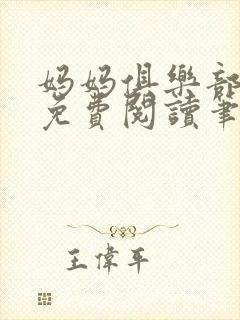 媽媽俱樂部
免費閱讀筆
王偉平